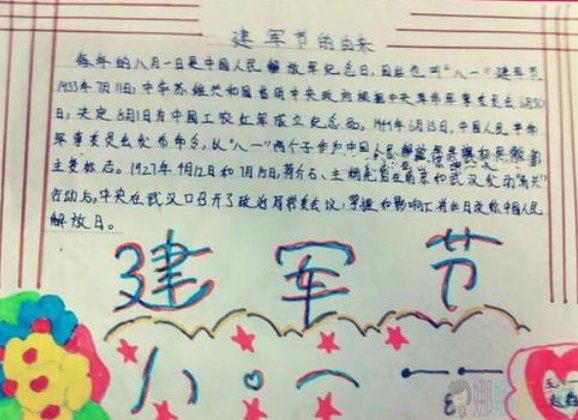 建军节的由来
每年的八月一日是中国人民解放军纪念日,因此也叫"八一"建军节
1933年7月11日,中华苏维共和国临时中央政府根据中央革命军事委员会6月30
日,决定8月1日为中国工农红军成立纪念日。1949年6月15日,中国人民革命
军事委员会发布命令,以"八一"两个字作中国人民解放军军旗和军徽的
主要标志。1927年4月12日和7月15日,蒋介石、在南京和武汉发动
行动后,中央在武汉口召开了政治局常委会议,将此日改称中国人民
解放日。
建军节
八 一